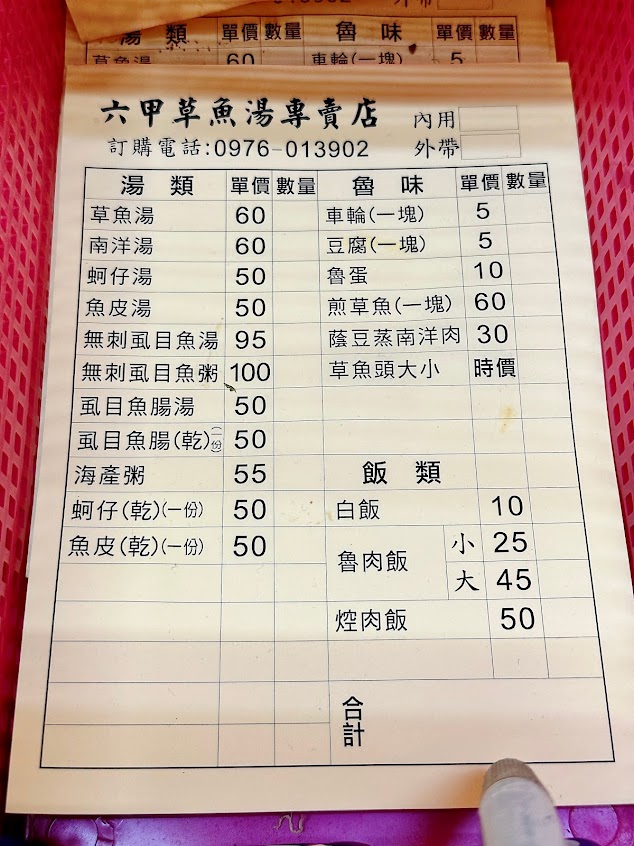 外帶
湯 類 單價 數量 魯 味 單價 數量
草魚湯 60 車輪(一塊) 5
六甲草魚湯專賣店 內用
訂購電話:0976-013902 外帶
湯 類 單價 數量 魯 味 單價 數量
草魚湯 60 車輪(一塊) 5
南洋湯 60 豆腐(一塊) 5
蚵仔湯 50 魯蛋 10
魚皮湯 50 煎草魚(一塊) 60
無刺虱目魚湯 95 蔭豆蒸南洋肉 30
無刺虱目魚粥 100 草魚頭大小 時價
虱目魚腸湯 50
虱目魚腸(乾)(一份) 50
海產粥 55 飯 類
蚵仔(乾)(一份) 50 白飯 10
魚皮(乾)(一份) 50 魯肉飯 小 25
大 45
焢肉飯 50
合計